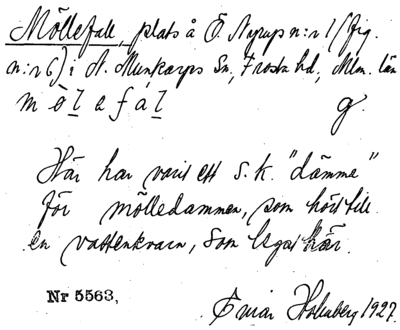 Möllefall, plats å Ö. Nyrup n:r 1/frg.
n:r 6) i N. Munkarps Sn, Frosta hd, Mlm. län
m ò l a f á l g.
Här har varit ett s.k. "dämme"
för mölledammen, som hört till
en vattenkvarn, som legat här.
Nr 5563,
Holmberg 1927.